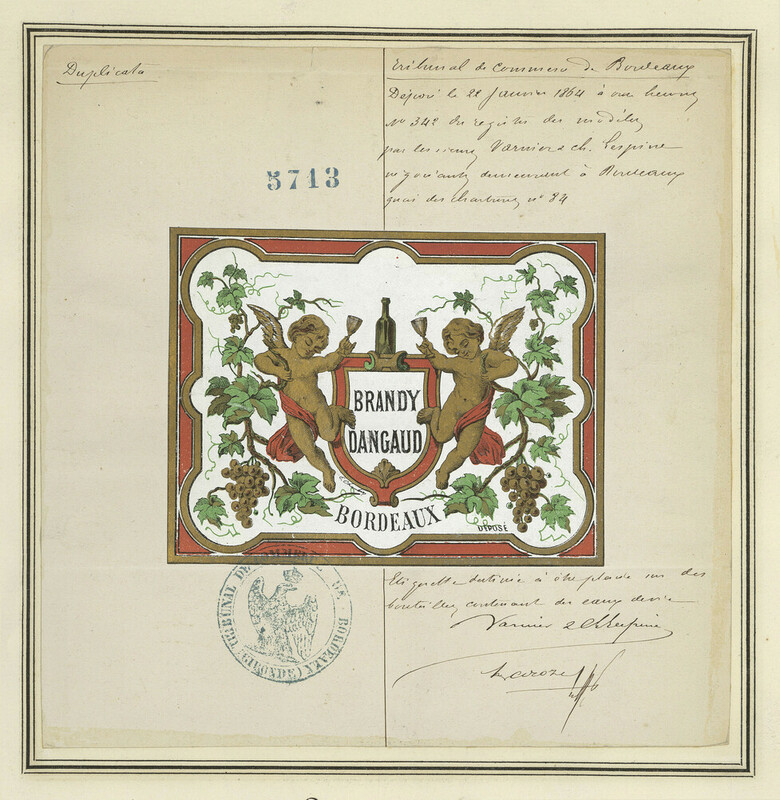 Duplicata
Tribunal de commerce de Bordeaux
Déposé le 22 Janvier 1864 à onze heures
No 342 du registre des modèles
par les sieurs Varnier & ch. Lespine
négociants demeurant à Bordeaux
quai des chartrons no 84
5713
BRANDY
DANGAUD
BORDEAUX
DÉPOSÉ
TRIBUNAL DE COMMERCE DE BORDEAUX
(GIRONDE)
Etiquette destinée à être placée sur des
bouteilles contenant des eaux de vie
Varnier & Ch Lespine